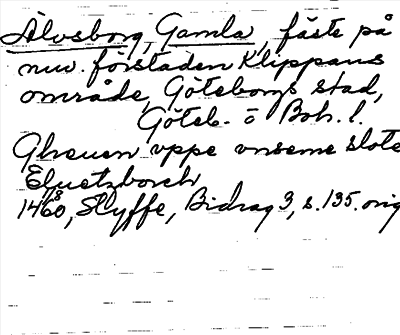 Älvsborg, Gamla, fäste på
nuv. förstaden Klippans
område, Göteborgs stad,
Göteb. o Boh. l.
Gheuen vppe vnseme slote
Eluetzborch
1460, Styffe, Bidrag 3, s. 135. orig